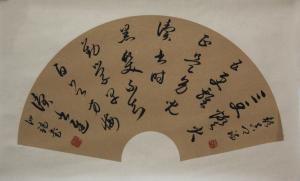 三更灯火
五更鸡
正是男儿
读书时
黑发不知
勤学早
白首方悔
读书迟